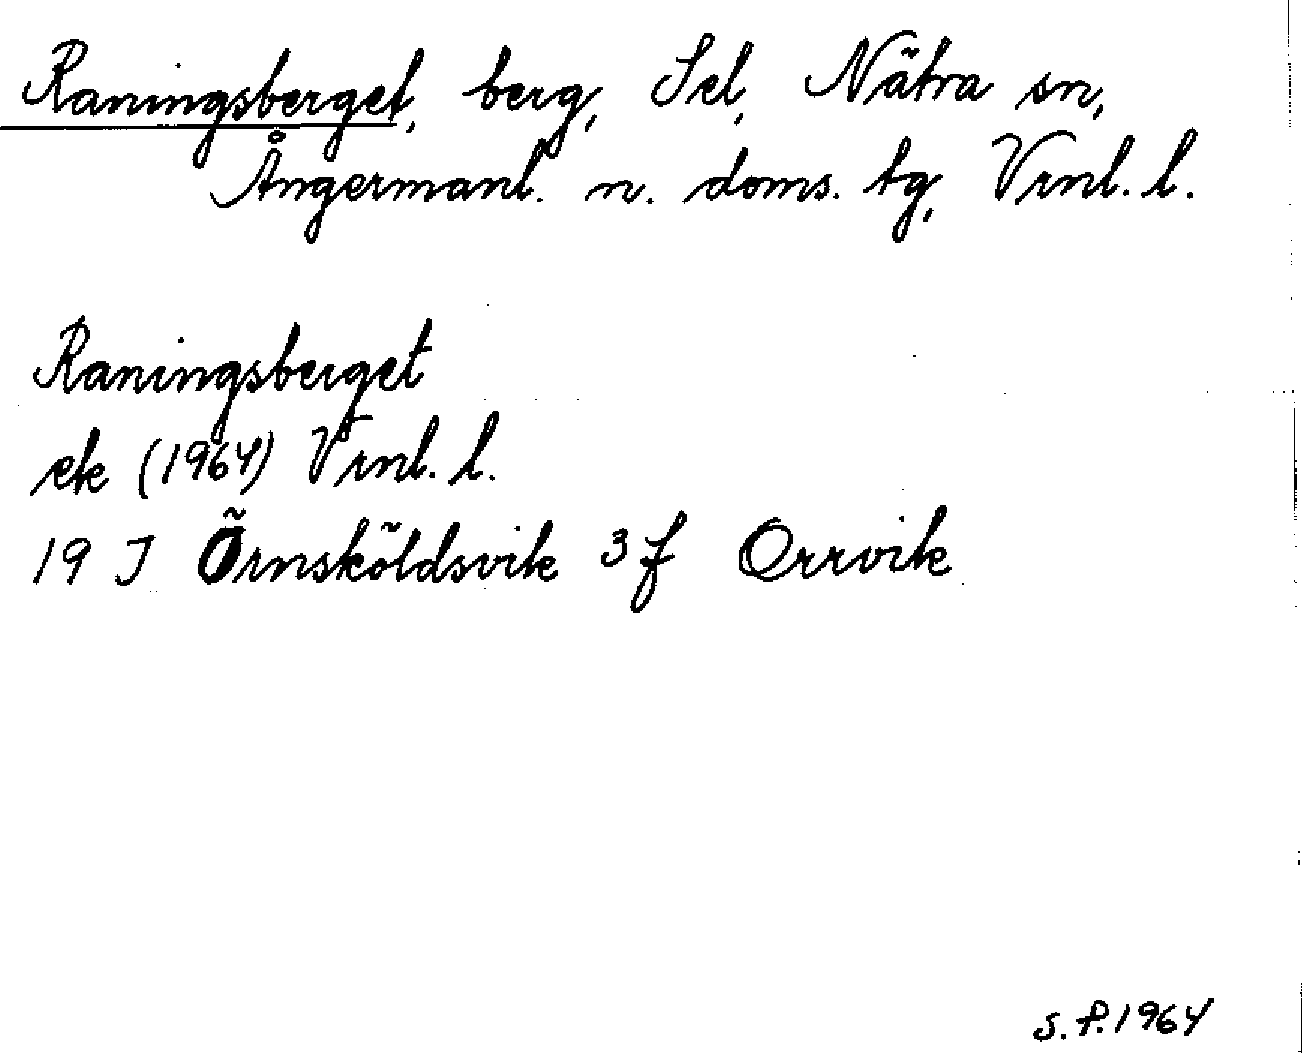 Raningsberget, berg, Sel, Nätra sn,
Ångermanl. n. doms. tg, Vrnl. l.
Raningsberget
ek (1964) Vrnl. l.
19 J Örnsköldsvik 3 f Orrvik
S. P. 1964